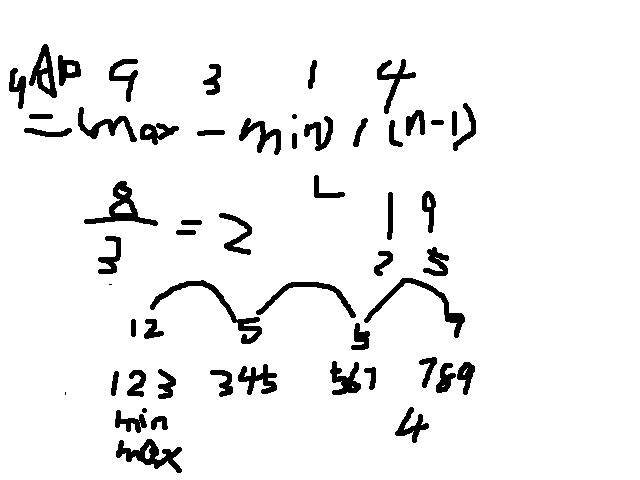 9 3 1 4
= (max - min) / (n-1)
8/3 = 2
1 9
2 5
12 5 5 7
123 345 567 789
min 4
max